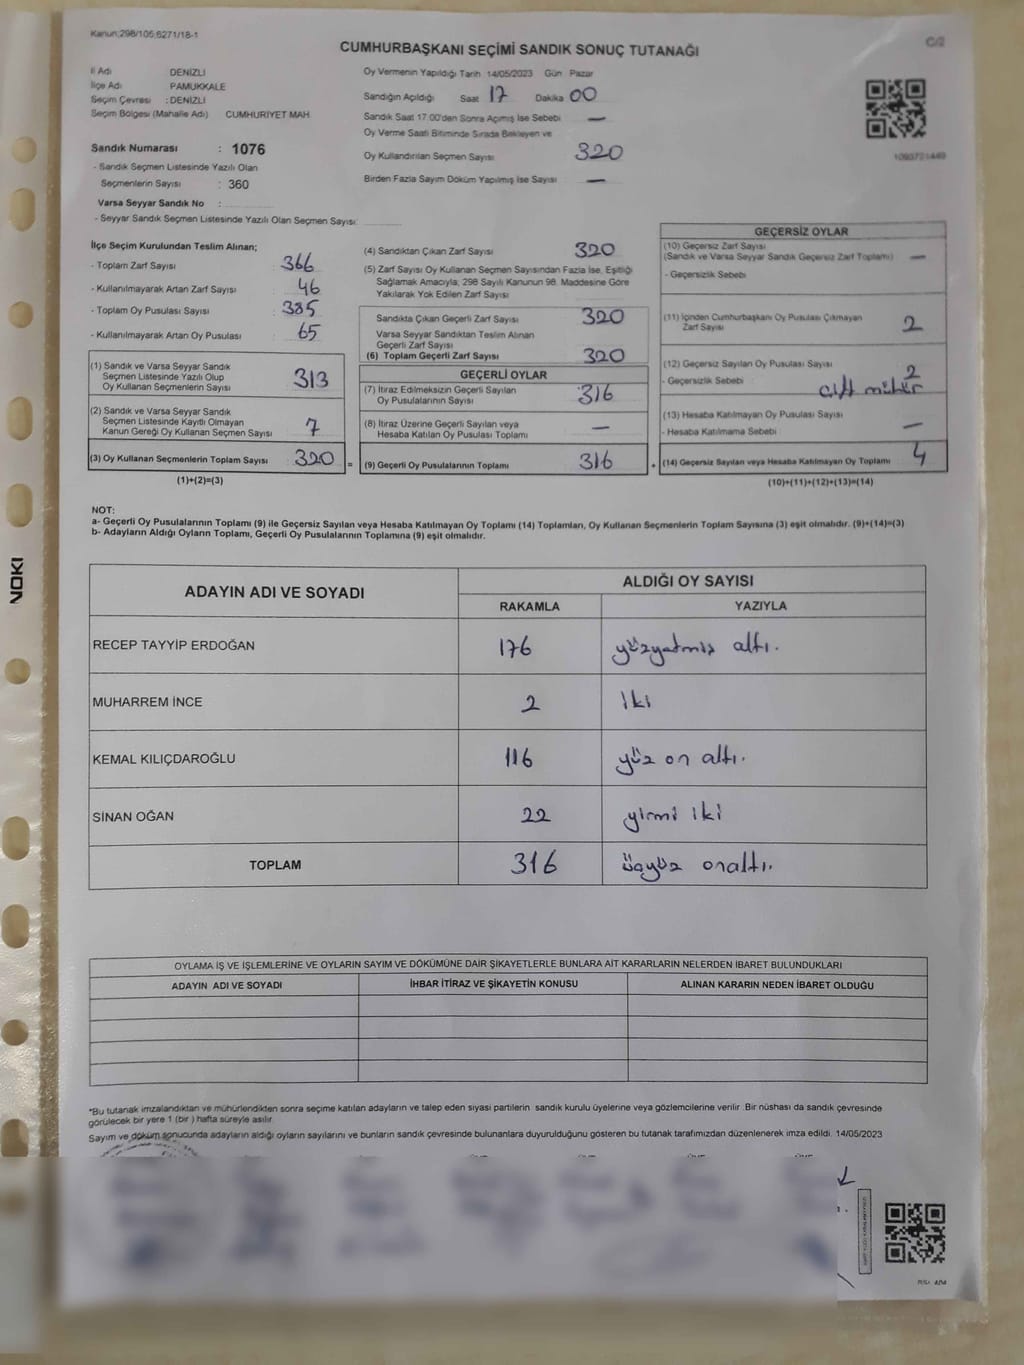 Kanun;298/105;6271/18-1
CUMHURBAŞKANI SEÇİMİ SANDIK SONUÇ TUTANAĞI
C/2
İl Adı DENİZLİ
İlçe Adı PAMUKKALE
Seçim Çevresi : DENİZLİ
Seçim Bölgesi (Mahalle Adı) CUMHURIYET MAH.
Sandık Numarası : 1076
- Sandık Seçmen Listesinde Yazılı Olan
Seçmenlerin Sayısı : 360
Varsa Seyyar Sandık No :
- Seyyar Sandık Seçmen Listesinde Yazılı Olan Seçmen Sayısı:
Oy Vermenin Yapıldığı Tarih 14/05/2023 Gün Pazar
Sandığın Açıldığı Saat 17 Dakika 00
Sandık Saat 17.00'den Sonra Açımış İse Sebebi —
Oy Verme Saati Bitiminde Sırada Bekleyen ve
Oy Kullandırılan Seçmen Sayısı 320
Birden Fazla Sayım Döküm Yapılmış İse Sayısı —
1093721449
İlçe Seçim Kurulundan Teslim Alınan;
- Toplam Zarf Sayısı : 366
- Kullanılmayarak Artan Zarf Sayısı : 46
- Toplam Oy Pusulası Sayısı : 385
- Kullanılmayarak Artan Oy Pusulası : 65
(1) Sandık ve Varsa Seyyar Sandık
Seçmen Listesinde Yazılı Olup
Oy Kullanan Seçmenlerin Sayısı 313
(2) Sandık ve Varsa Seyyar Sandık
Seçmen Listesinde Kayıtlı Olmayan
Kanun Gereği Oy Kullanan Seçmen Sayısı 7
(3) Oy Kullanan Seçmenlerin Toplam Sayısı 320 =
(1)+(2)=(3)
(4) Sandıktan Çıkan Zarf Sayısı 320
(5) Zarf Sayısı Oy Kullanan Seçmen Sayısından Fazla İse, Eşitliği
Sağlamak Amacıyla; 298 Sayılı Kanunun 98. Maddesine Göre
Yakılarak Yok Edilen Zarf Sayısı
Sandıkta Çıkan Geçerli Zarf Sayısı 320
Varsa Seyyar Sandıktan Teslim Alınan
Geçerli Zarf Sayısı
(6) Toplam Geçerli Zarf Sayısı 320
GEÇERLİ OYLAR
(7) İtiraz Edilmeksizin Geçerli Sayılan
Oy Pusulalarının Sayısı 316
(8) İtiraz Üzerine Geçerli Sayılan veya
Hesaba Katılan Oy Pusulası Toplamı —
(9) Geçerli Oy Pusulalarının Toplamı 316 +
GEÇERSİZ OYLAR
(10) Geçersiz Zarf Sayısı
(Sandık ve Varsa Seyyar Sandık Geçersiz Zarf Toplamı) —
- Geçersizlik Sebebi
(11) İçinden Cumhurbaşkanı Oy Pusulası Çıkmayan
Zarf Sayısı 2
(12) Geçersiz Sayılan Oy Pusulası Sayısı 2
- Geçersizlik Sebebi çift mühür
(13) Hesaba Katılmayan Oy Pusulası Sayısı —
- Hesaba Katılmama Sebebi
(14) Geçersiz Sayılan veya Hesaba Katılmayan Oy Toplamı 4
(10)+(11)+(12)+(13)=(14)
NOT:
a- Geçerli Oy Pusulalarının Toplamı (9) ile Geçersiz Sayılan veya Hesaba Katılmayan Oy Toplamı (14) Toplamları, Oy Kullanan Seçmenlerin Toplam Sayısına (3) eşit olmalıdır. (9)+(14)=(3)
b- Adayların Aldığı Oyların Toplamı, Geçerli Oy Pusulalarının Toplamına (9) eşit olmalıdır.
NOKI
ADAYIN ADI VE SOYADI
ALDIĞI OY SAYISI
RAKAMLA YAZIYLA
RECEP TAYYİP ERDOĞAN 176 yüzyetmiş altı.
MUHARREM İNCE 2 iki
KEMAL KILIÇDAROĞLU 116 yüz on altı.
SİNAN OĞAN 22 yirmi iki
TOPLAM 316 üçyüz onaltı.
OYLAMA İŞ VE İŞLEMLERİNE VE OYLARIN SAYIM VE DÖKÜMÜNE DAİR ŞİKAYETLERLE BUNLARA AİT KARARLARIN NELERDEN İBARET BULUNDUKLARI
ADAYIN ADI VE SOYADI İHBAR İTİRAZ VE ŞİKAYETİN KONUSU ALINAN KARARIN NEDEN İBARET OLDUĞU
*Bu tutanak imzalandıktan ve mühürlendikten sonra seçime katılan adayların ve talep eden siyasi partilerin sandık kurulu üyelerine veya gözlemcilerine verilir. Bir nüshası da sandık çevresinde
görülecek bir yere 1 (bir) hafta süreyle asılır.
Sayım ve döküm sonucunda adayların aldığı oyların sayılarını ve bunların sandık çevresinde bulunanlara duyurulduğunu gösteren bu tutanak tarafımızdan düzenlenerek imza edildi. 14/05/2023